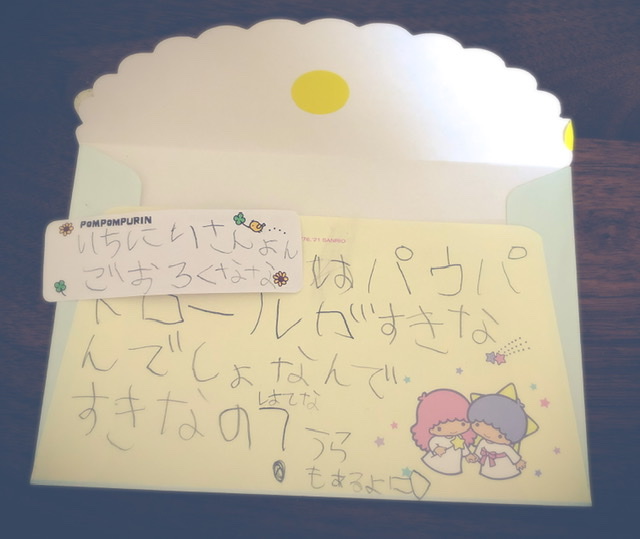 POMPOMPURIN
いちにいさんよん
ごおろくなな
'76, '21 SANRIO
はパウパ
トロールがすきな
んでしょなんで
すきなの?
はてな
うら
もあるよ